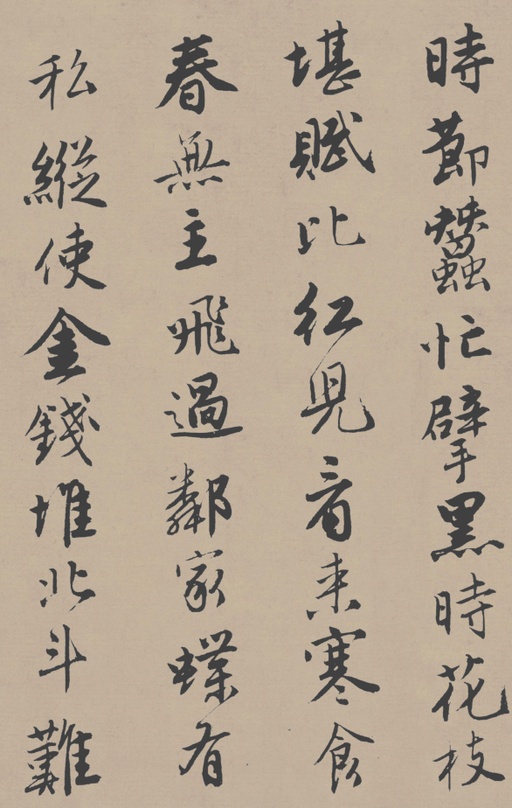 時節蠶忙擘黑時花枝
堪賦比紅兒看來寒食
春無主飛過鄰家蝶有
私縱使金錢堆北斗難